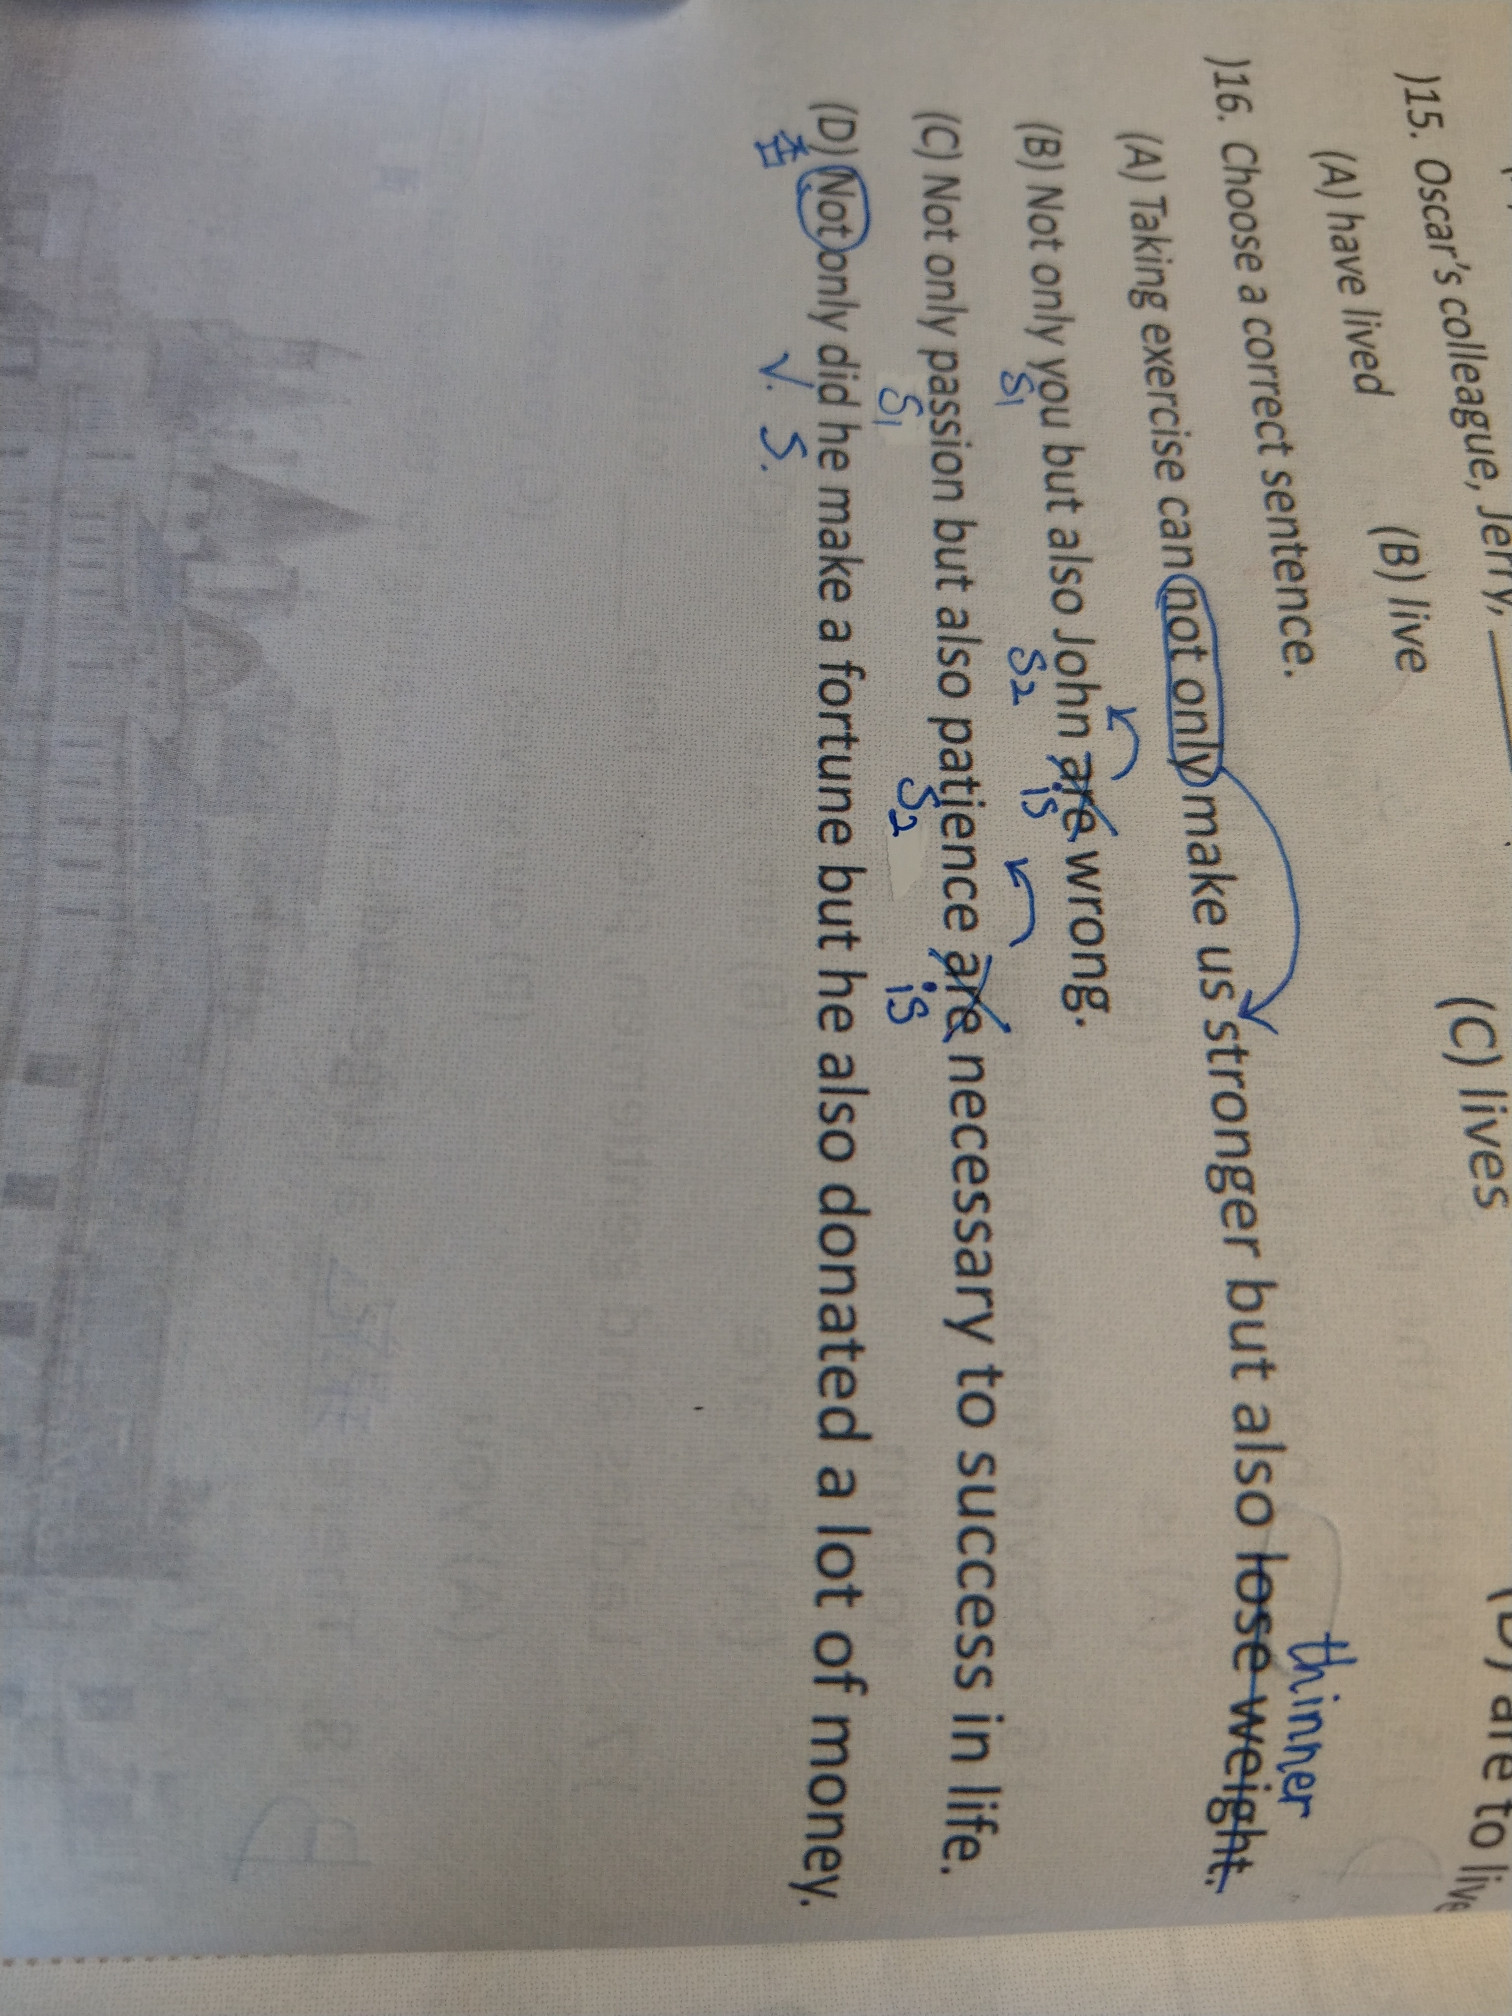 )15. Oscar's colleague, Jerry,
(A) have lived (B) live (C) lives (D) are to live
)16. Choose a correct sentence.
thinner
(A) Taking exercise can not only make us stronger but also lose weight.
(B) Not only you but also John are wrong.
S1 S2 is
(C) Not only passion but also patience are necessary to success in life.
S1 S2 is
(D) Not only did he make a fortune but he also donated a lot of money.
否 V. S.